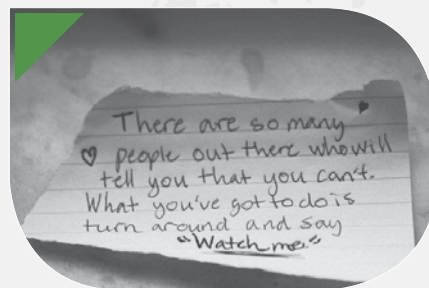 There are so many
♡ people out there who will
tell you that you can't.
What you've got to do is
turn around and say
"Watch me."